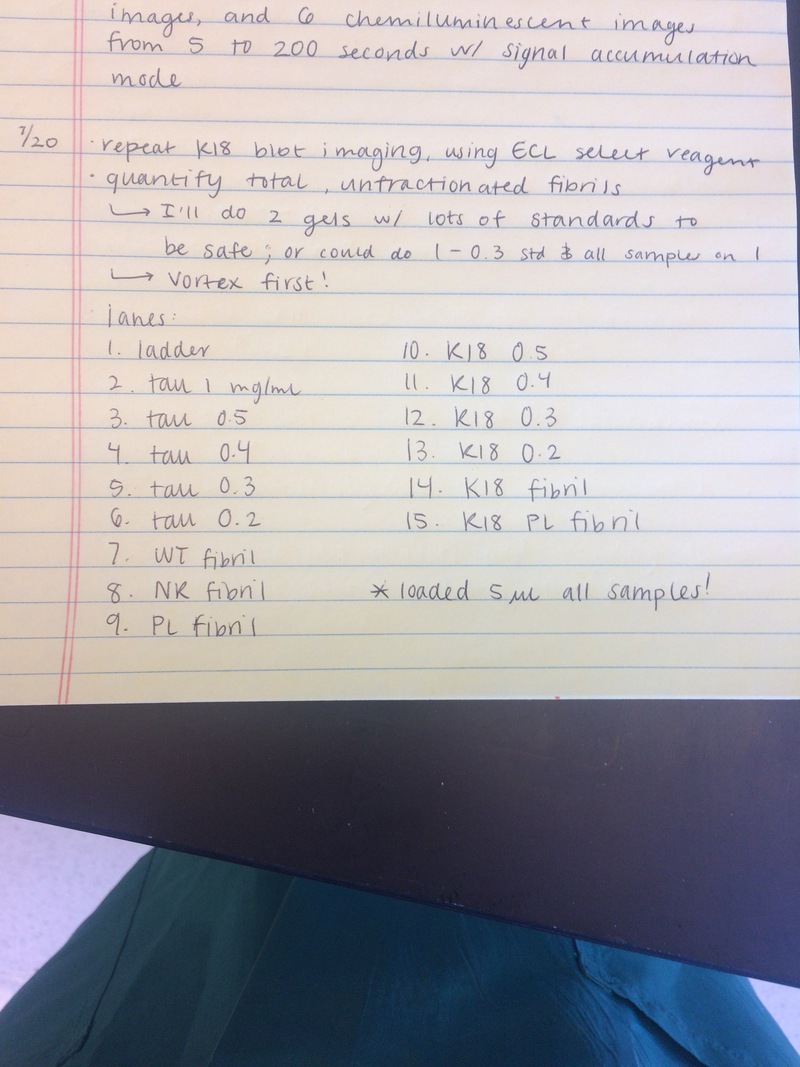 images, and 6 chemiluminescent images
from 5 to 200 seconds w/ signal accumulation
mode
7/20 · repeat K18 blot imaging, using ECL select reagent
· quantify total, unfractionated fibrils
↳ I'll do 2 gels w/ lots of standards to
be safe; or could do 1-0.3 std & all samples on 1
↳ vortex first!
lanes:
1. ladder
2. tau 1 mg/mL
3. tau 0.5
4. tau 0.4
5. tau 0.3
6. tau 0.2
7. WT fibril
8. NK fibril
9. PL fibril
10. K18 0.5
11. K18 0.4
12. K18 0.3
13. K18 0.2
14. K18 fibril
15. K18 PL fibril
* loaded 5 µL all samples!